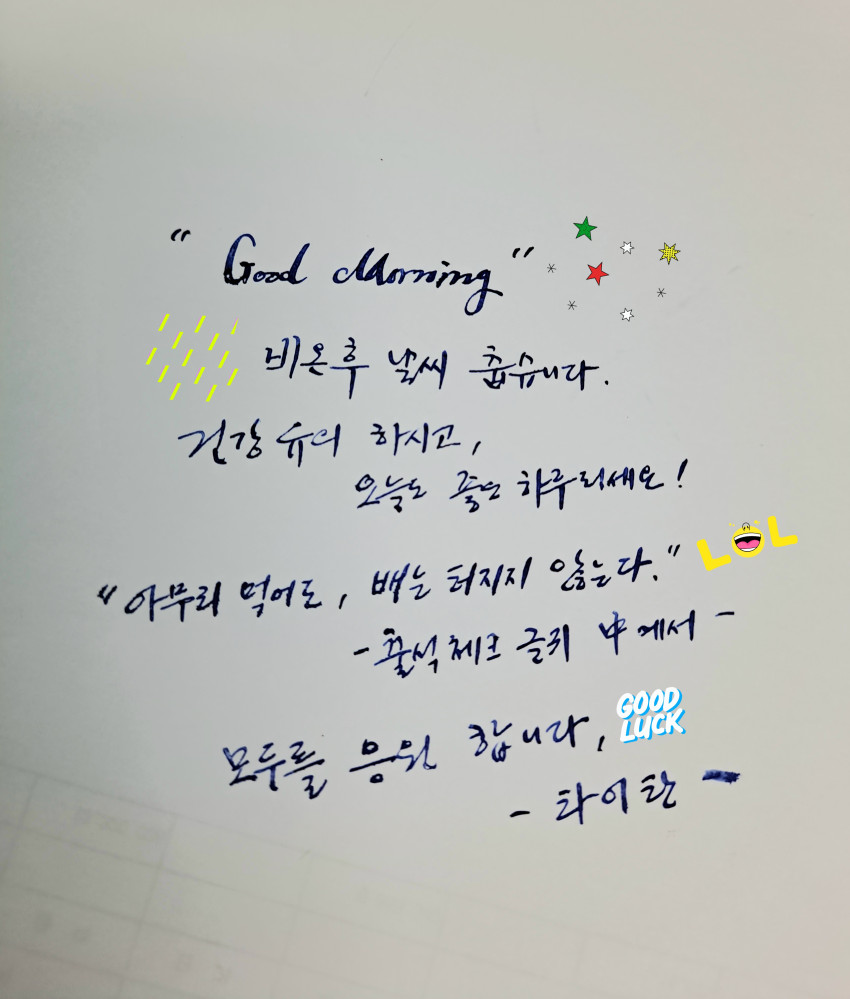 “ Good Morning ”
비온후 날씨 춥습니다.
건강 유의 하시고,
오늘도 좋은 하루되세요!
“ 아무리 먹어도, 배는 터지지 않는다. ”
LOL
- 출석체크 글귀 中에서 -
GOOD LUCK
모두를 응원 합니다,
- 타이탄 -